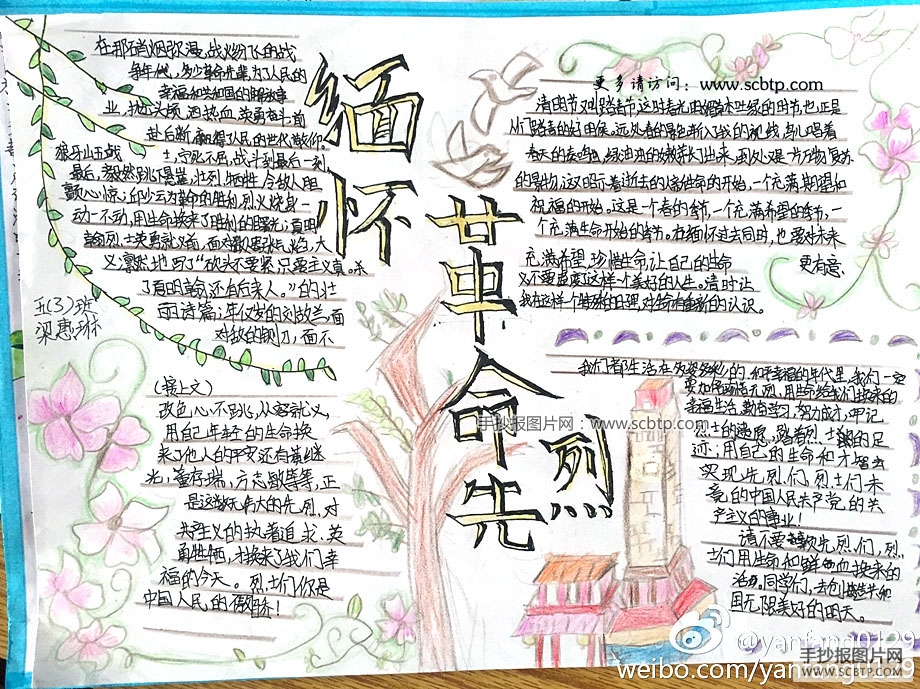 缅怀
革命先
烈
在那硝烟弥漫、战火纷飞的战
争年代,多少革命先辈为了人民的
幸福和共和国的解放事
业,抛头颅、洒热血,英勇奋斗,前
赴后继,赢得了人民的世代敬仰。
狼牙山五战士,宁死不屈,战斗到最后一刻
最后,毅然跳下悬崖,壮烈牺牲,令敌人胆
颤心惊;丘少云为革命的胜利,烈火烧身一
动一不动,用生命换来了胜利的曙光;夏明
翰烈士英勇就义前,面对敌人嚣张气焰,大
义凛然地写下“砍头不要紧,只要主义真。杀
了夏明翰,还有后来人。”的壮
丽诗篇;年仅岁的刘胡兰,面
对敌的铡刀,面不
五(3)班
梁惠琳
(接上文)
改色心不跳,从容就义,
用自己年轻的生命换
来了他人的平安还有黄继
光、董存瑞、方志敏等等,正
是这些无伟大的先烈,对
共产主义的执着追求,英
勇牺牲,才换来了我们幸
福的今天。烈士们,你是
中国人民的骄傲!
更多请访问:www.scbtp.com
清明节又叫踏青节,这时春光明媚草木吐绿的时节,也正是
人们踏青的好时候。远处春的景色渐入我的视线,鸟儿唱着
春天的奏鸣曲,绿油油的嫩芽长了出来,到处又是一片万物复苏
的景物,这又昭示着逝去的人终性命的开始,一个充满期望和
祝福的开始。这是一个春的季节,一个充满希望的季节,一
个充满生命开始的季节。在缅怀过去同时,也要对未来
充满希望,珍惜生命,让自己的生命
更有意
义,不要虚度这样一个美好的人生。清明让
我在这样个特殊的日里,对命有重新的认识。
我们都生活在多姿多彩的、和平幸福的年代里,我们一定
要加倍珍惜先烈,用生命给我们换来的
幸福生活,勤奋学习,努力成才,牢记
烈士的遗愿,踏着烈士的足
迹,用自己的生命和才智去
实现先烈们、烈士们未
竟的中国人民共产党的共
产主义的事业!
请不要忘先烈们,烈
士们用生命和鲜血换来的
活,同学们,去创造祥和
国无限美好的明天。
手抄报图片网 www.scbtp.com
@yanfang0129
weibo.com/yanfang0129
手抄报图片网
WWW.SCBTP.COM